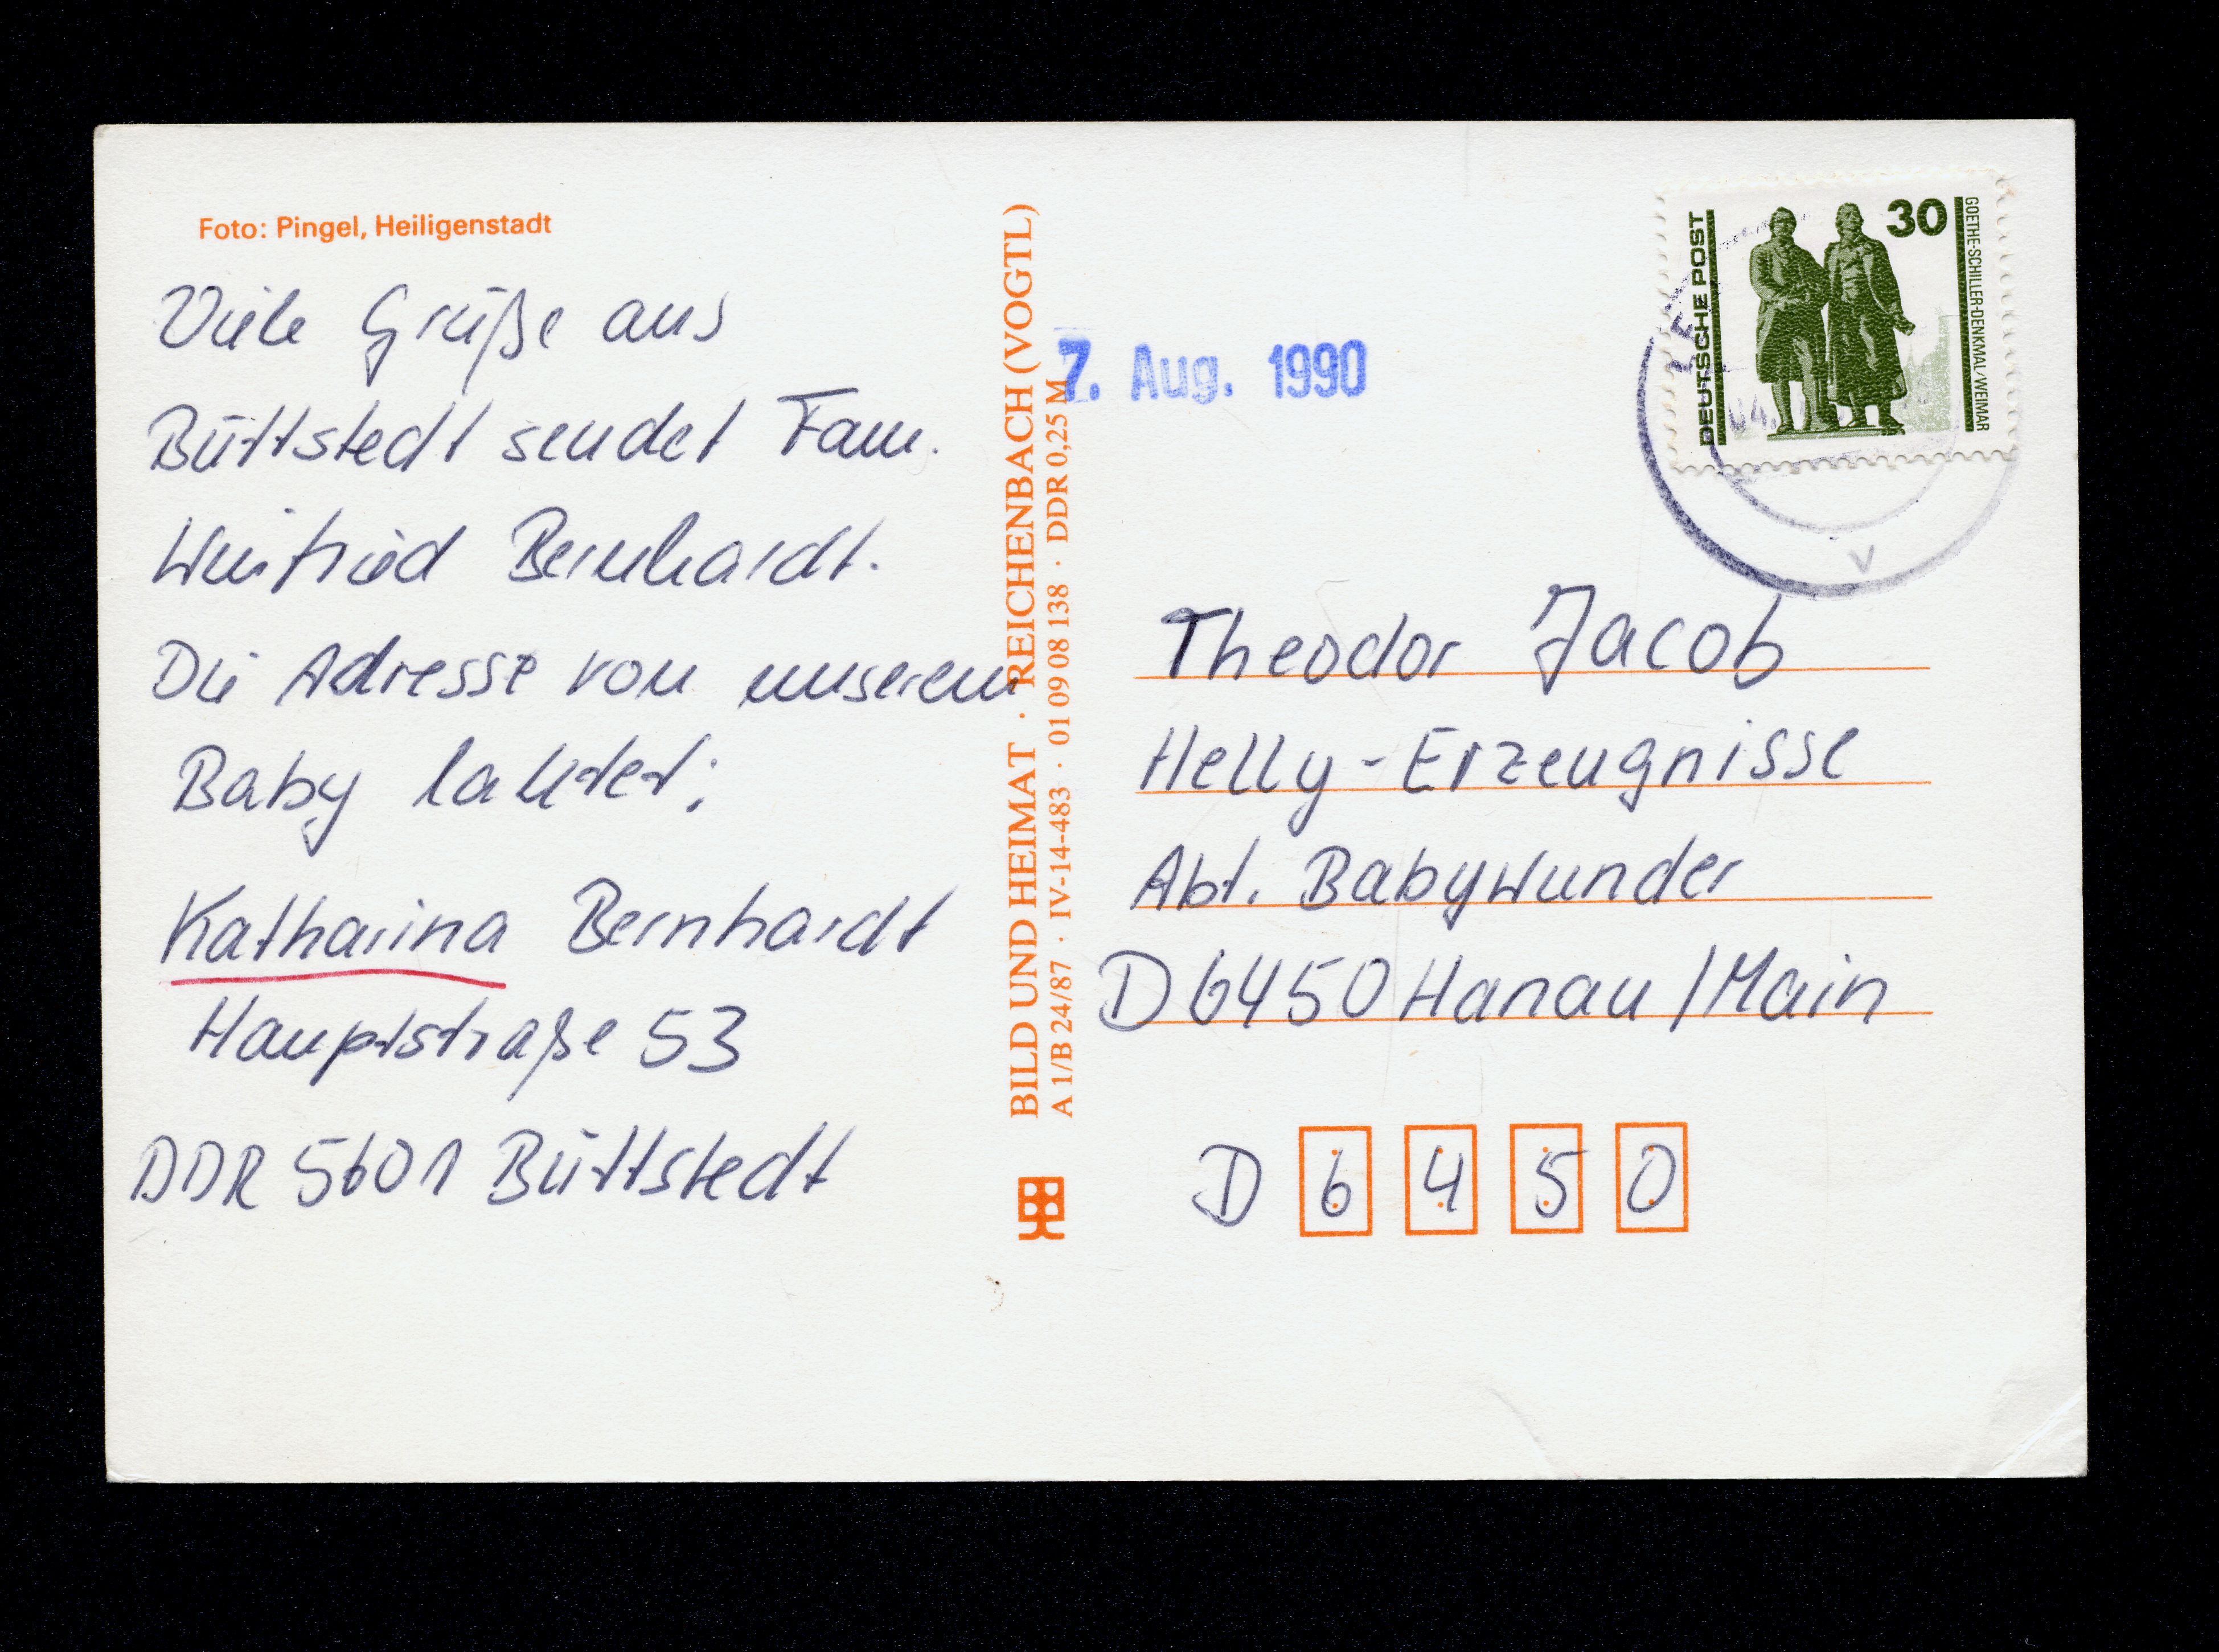 Foto: Pingel, Heiligenstadt
Viele Grüße aus
Büttstedt sendet Fam.
Winfried Bernhardt.
Die Adresse von unserem
Baby lautet:
Katharina Bernhardt
Hauptstraße 53
DDR 5601 Büttstedt
BILD UND HEIMAT · REICHENBACH (VOGTL)
A 1/B 24/87 · IV-14-483 · 01 09 08 138 · DDR 0,25 M
7. Aug. 1990
DEUTSCHE POST
30
GOETHE-SCHILLER-DENKMAL/WEIMAR
v
Theodor Jacob
Helly-Erzeugnisse
Abt. Babywunder
D 6450 Hanau / Main
D 6 4 5 0